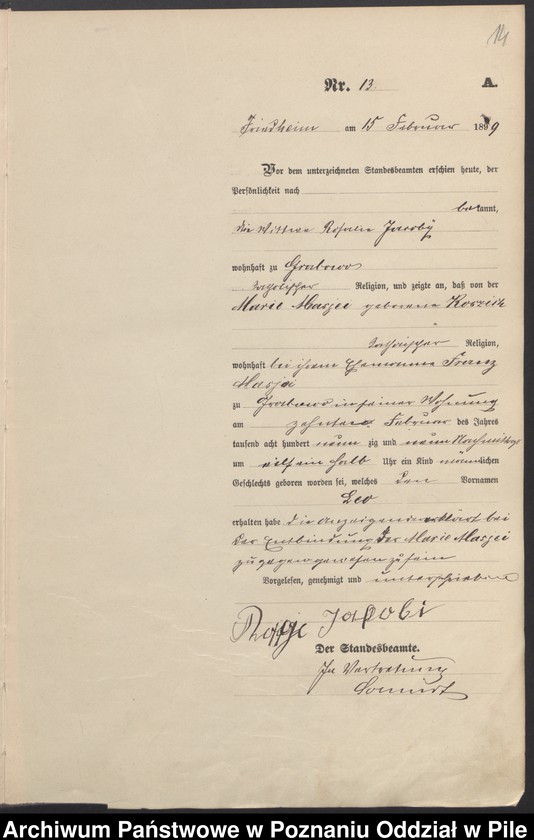 14
Nr. 13. A.
Friedheim am 15 Februar 1899
Vor dem unterzeichneten Standesbeamten erschien heute, der
Persönlichkeit nach
bekannt,
die Wittwe Rosalie Jacoby
wohnhaft zu Grabowo
katholischer Religion, und zeigte an, daß von der
Marie Masjei geborene
katholischer Religion,
wohnhaft bei ihrem Ehemanne Franz
Masjei
zu Grabowo in seiner Wohnung
am zehnten Februar des Jahres
tausend acht hundert neun zig und neun Nachmittags
um elf ein halb Uhr ein Kind männlichen
Geschlechts geboren worden sei, welches den Vornamen
Leo
erhalten habe die Anzeigende erklärt bei
der Entbindung der Marie Masjei
zugegen gewesen zu sein
Vorgelesen, genehmigt und unterschrieben
Jacobi
Der Standesbeamte.
In Vertretung
Archiwum Państwowe w Poznaniu Oddział w Pile